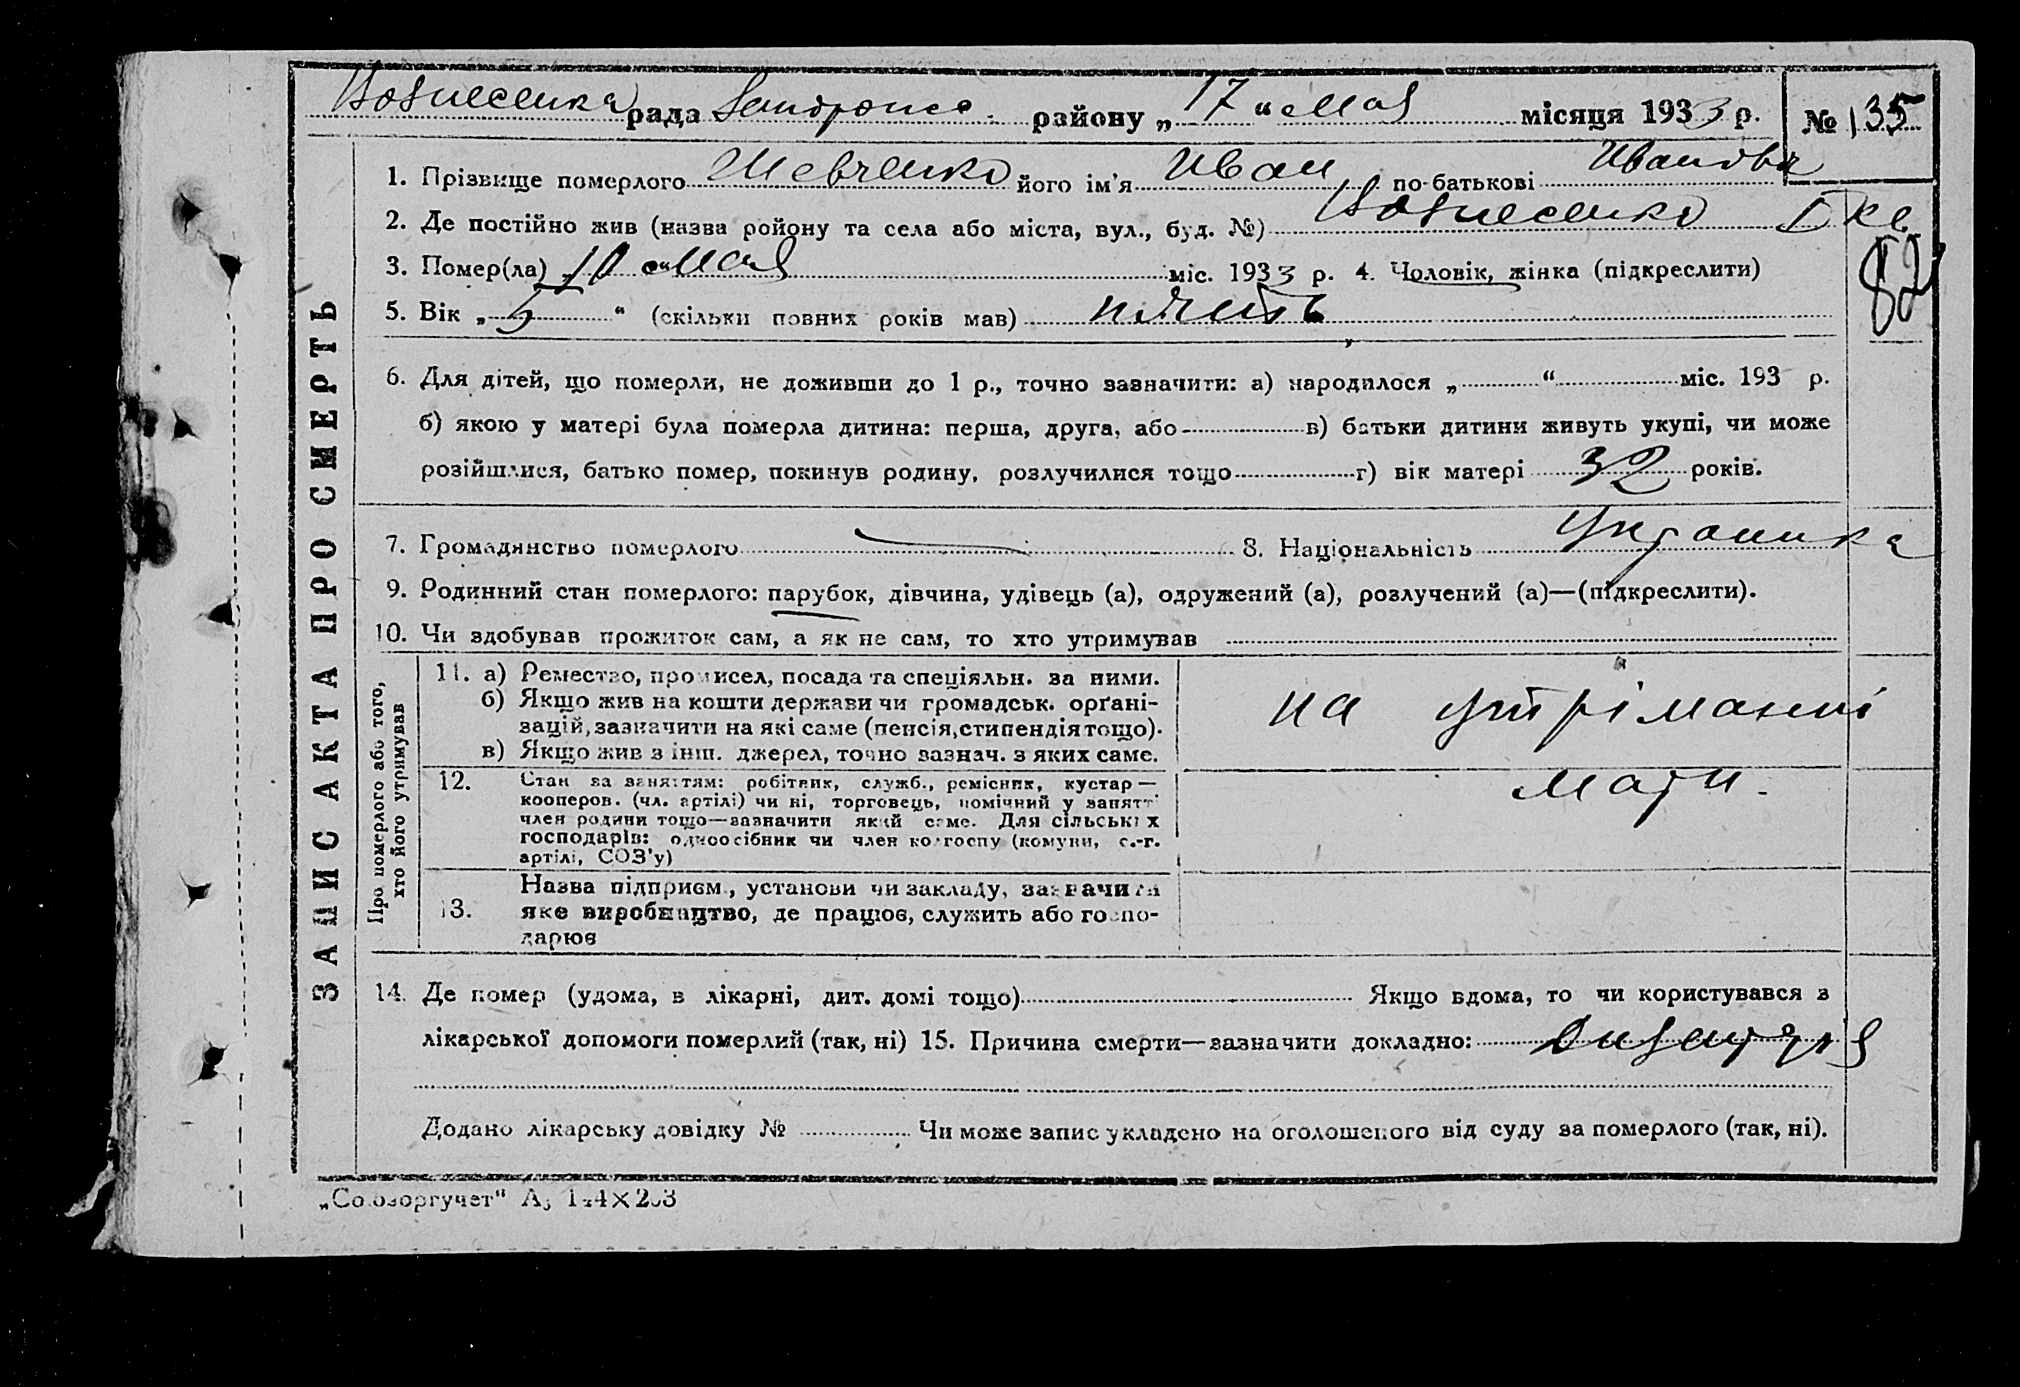 Вознесенка рада Запорож. району „ 17 “ Мая місяця 1933 р. № 135
1. Прізвище померлого Шевченко його ім'я Иван по-батькові Иванович
2. Де постійно жив (назва ройону та села або міста, вул., буд. №) Вознесенко
3. Помер(ла) „ 10 “ Мая міс. 1933 р. 4. Чоловік, жінка (підкреслити)
82
5. Вік „ 5 “ (скільки повних років мав) пять
6. Для дітей, що померли, не доживши до 1 р., точно зазначити: а) народилося „ “ міс. 193 р.
б) якою у матері була померла дитина: перша, друга, або в) батьки дитини живуть укупі, чи може
розійшлися, батько помер, покинув родину, розлучилися тощо г) вік матері 32 років.
7. Громадянство померлого 8. Національність Украинка
9. Родинний стан померлого: парубок, дівчина, удівець (а), одружений (а), розлучений (а)—(підкреслити).
10. Чи здобував прожиток сам, а як не сам, то хто утримував
ЗАПИС АКТА ПРО СМЕРТЬ
Про померлого або того, хто його утримував
11. а) Ремество, промисел, посада та спеціяльн. за ними.
б) Якщо жив на кошти держави чи громадськ. орґані-
зацій, зазначити на які саме (пенсія, стипендія тощо).
в) Якщо жив з інш. джерел, точно зазнач. з яких саме.
на утріманні
мати.
12. Стан за заняттям: робітник, служб., ремісник, кустар—
кооперов. (чл. артілі) чи ні, торговець, помічний у занятт
член родини тощо—зазначити який саме. Для сільських
господарів: одноосібник чи член колгоспу (комуни, с.-г.
артілі, СОЗ'у)
13. Назва підприєм., установи чи закладу, зазначити
яке виробництво, де працює, служить або госпо-
дарює
14. Де помер (удома, в лікарні, дит. домі тощо) Якщо вдома, то чи користувався з
лікарської допомоги померлий (так, ні) 15. Причина смерти—зазначити докладно: Дизентерія
Додано лікарську довідку № Чи може запис укладено на оголошеного від суду за померлого (так, ні).
„Союзоргучет“ А5 144×203